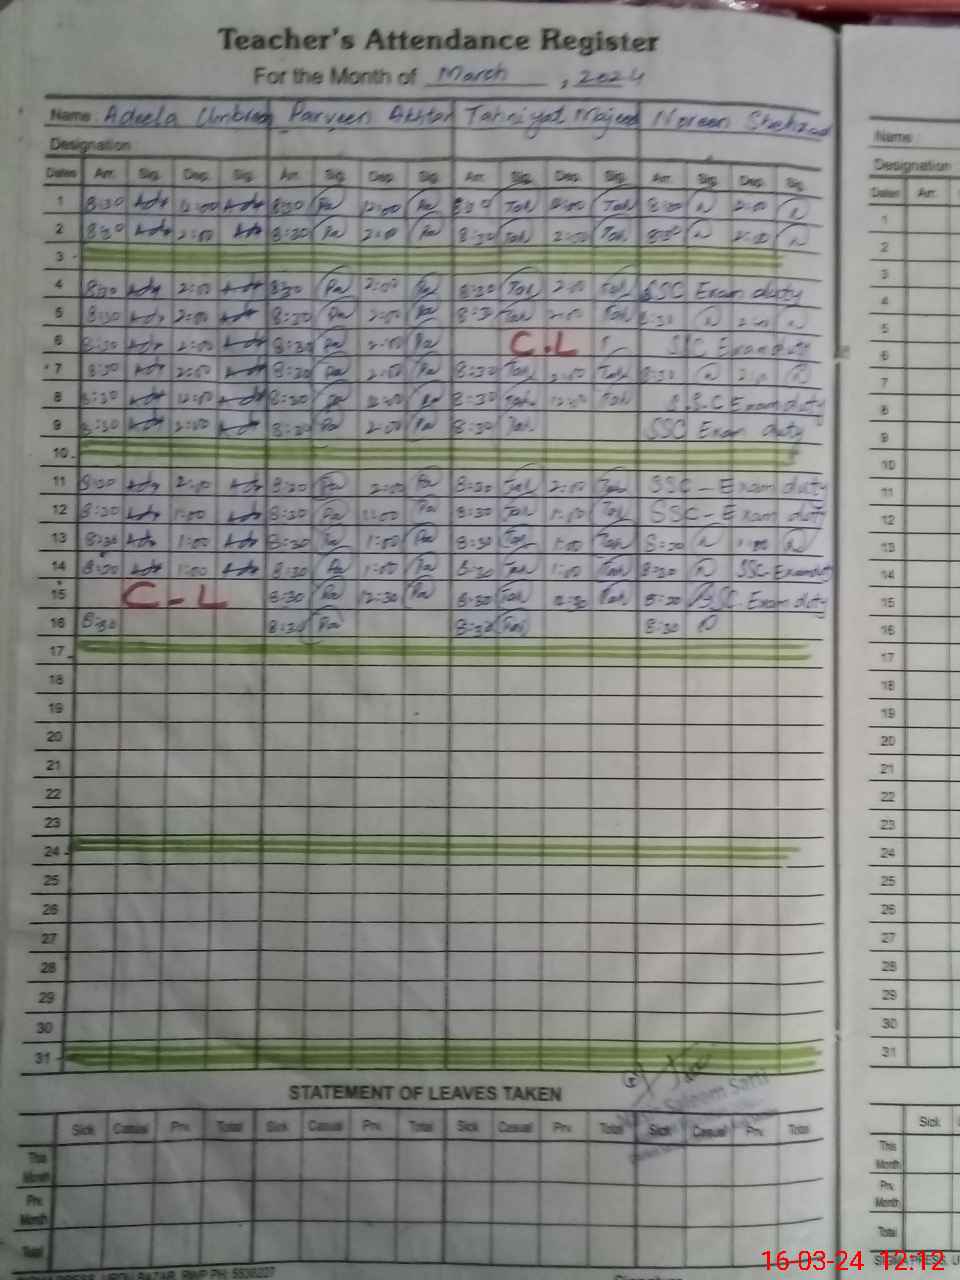 Teacher's Attendance Register
For the Month of March, 2024
Name: Adeela Umbreen Parveen Akhtar Tahniyat Majeed Noreen Shehzad
Name:
Designation
Designation
Dates Arr. Sig. Dep. Sig. Arr. Sig. Dep. Sig. Arr. Sig. Dep. Sig. Arr. Sig. Dep. Sig.
Dates Arr.
1 8:30 Ade 12:00 Ade 8:30 Pa 12:00 Pa 8:30 Tah Tah 8:30 2:00
1
2 8:30 Ade 2:00 Ade 8:30 Pa 2:00 Pa 8:30 Tah 2:00 Tah 8:30 2:00
2
3
3
4 8:30 Ade 2:00 Ade 8:30 Pa 2:00 Pa 8:30 Tah 2:00 Tah SSC Exam duty
4
5 8:30 Ade 2:00 Ade 8:30 Pa 2:00 Pa 8:30 Tah 2:00 Tah 8:30 2:00
5
6 8:30 Ade 2:00 Ade 8:30 Pa 2:00 Pa C.L SSC Exam duty
6
7 8:30 Ade 2:00 Ade 8:30 Pa 2:00 Pa 8:30 Tah 2:00 Tah 8:30 2:00
7
8 8:30 Ade 12:00 Ade 8:30 Pa 12:00 Pa 8:30 Tah 12:00 Tah S.S.C Exam duty
8
9 8:30 Ade 2:00 Ade 8:30 Pa 2:00 Pa 8:30 Tah SSC Exam duty
9
10
10
11 8:30 Ade 2:00 Ade 8:30 Pa 2:00 Pa 8:30 Tah 2:00 Tah SSC - Exam duty
11
12 8:30 Ade 1:00 Ade 8:30 Pa 1:00 Pa 8:30 Tah 1:00 Tah SSC - Exam duty
12
13 8:30 Ade 1:00 Ade 8:30 Pa 1:00 Pa 8:30 Tah 1:00 Tah 8:30 1:00
13
14 8:30 Ade 1:00 Ade 8:30 Pa 1:00 Pa 8:30 Tah 1:00 Tah 8:30 SSC-Exam duty
14
15 C-L 8:30 Pa 12:30 Pa 8:30 Tah 12:30 Tah 8:30 SSC. Exam duty
15
16 8:30 8:30 Pa 8:30 Tah 8:30
16
17
17
18
18
19
19
20
20
21
21
22
22
23
23
24
24
25
25
26
26
27
27
28
28
29
29
30
30
31
31
STATEMENT OF LEAVES TAKEN
Saleem
Sick Casual Prv. Total Sick Casual Prv. Total Sick Casual Prv. Total Sick Casual Prv. Total
Sick
This Month
This Month
Prv. Month
Prv. Month
Total
Total
PRESS, URDU BAZAR, RWP PH: 5539227
Signature
PRESS, U
16-03-24 12:12